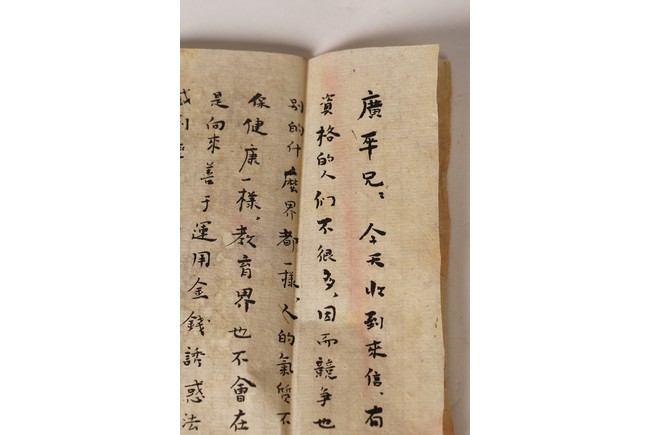 廣平兄：今天收到來信，有
資格的人們不很多，因而競爭也
别的什麼界都一樣，人的氣質不
像健康一樣，教育界也不會在
是向來善于運用金錢誘惑法